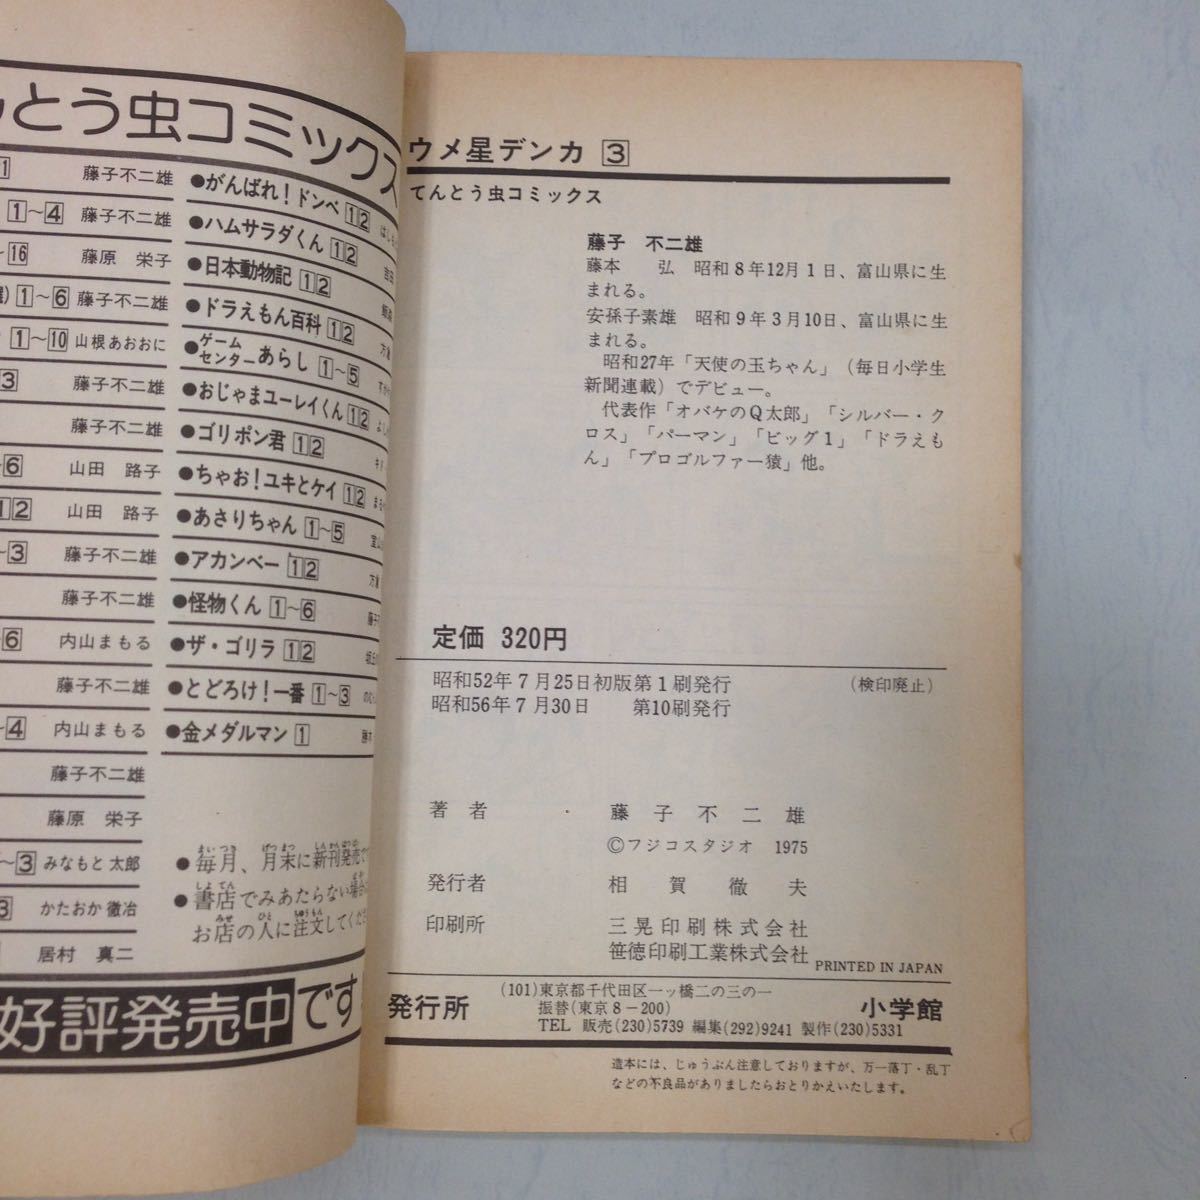 とう虫コミックス
1 藤子不二雄
1〜4 藤子不二雄
〜16 藤原 栄子
1〜6 藤子不二雄
1〜10 山根あおおに
3 藤子不二雄
藤子不二雄
〜6 山田 路子
12 山田 路子
〜3 藤子不二雄
藤子不二雄
〜6 内山まもる
藤子不二雄
〜4 内山まもる
藤子不二雄
藤原 栄子
〜3 みなもと太郎
3 かたおか徹治
居村 真二
●がんばれ!ドンベ 12
●ハムサラダくん 12
●日本動物記 12
●ドラえもん百科 12
●ゲームセンターあらし 1〜5
●おじゃまユーレイくん 12
●ゴリポン君 12
●ちゃお!ユキとケイ 12
●あさりちゃん 1〜5
●アカンベー 12
●怪物くん 1〜6
●ザ・ゴリラ 12
●とどろけ!一番 1〜3
●金メダルマン 1
●毎月、月末に新刊発売で
●書店でみあたらない場合
お店の人に注文してくだ
好評発売中です
ウメ星デンカ 3
てんとう虫コミックス
藤子 不二雄
藤本 弘 昭和8年12月1日、富山県に生
まれる。
安孫子素雄 昭和9年3月10日、富山県に生
まれる。
昭和27年「天使の玉ちゃん」(毎日小学生
新聞連載)でデビュー。
代表作「オバケのQ太郎」「シルバー・ク
ロス」「パーマン」「ビッグ1」「ドラえも
ん」「プロゴルファー猿」他。
定価 320円
昭和52年7月25日初版第1刷発行 (検印廃止)
昭和56年7月30日 第10刷発行
著者 藤子不二雄
©フジコスタジオ 1975
発行者 相賀徹夫
印刷所 三晃印刷株式会社
笹徳印刷工業株式会社
PRINTED IN JAPAN
発行所 (101)東京都千代田区一ッ橋二の三の一 小学館
振替(東京8-200)
TEL 販売(230)5739 編集(292)9241 製作(230)5331
造本には、じゅうぶん注意しておりますが、万一落丁・乱丁
などの不良品がありましたらおとりかえいたします。